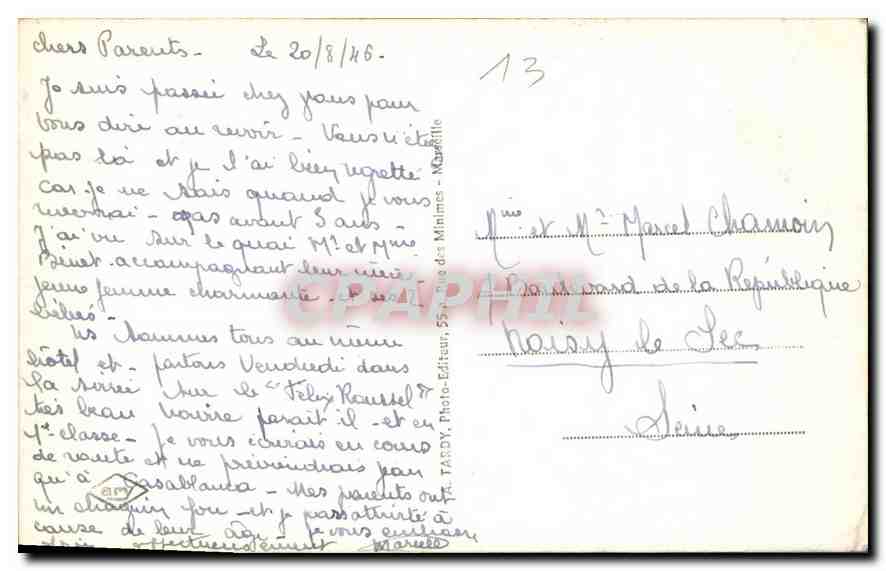 Chers Parents - Le 20/8/46 -
13
Je suis passée chez vous pour
vous dire au revoir - Vous n'étiez
pas là et je l'ai bien regretté
car je ne sais quand je vous
reverrai - pas avant 3 ans -
J'ai vu sur le quai Mr et Mme
Binet accompagnant leur
jeune femme charmante et ses 2
bébés -
Ns sommes tous au même
hôtel et - partons Vendredi dans
la soirée sur le "Felix Roussel"
très beau navire parait il - et en
1e classe - Je vous écrirais en cours
de route et ne
qu'à Casablanca - Mes parents ont
un chagrin fou - et je
cause de leur âge je vous embrasse
affectueusement Marcelle
am
TARDY, Photo-Editeur, 55, Rue des Minimes - Marseille
CPAPHIL
Mme et Mr Marcel Chamoin
Boulevard de la République
Noisy le Sec
Seine